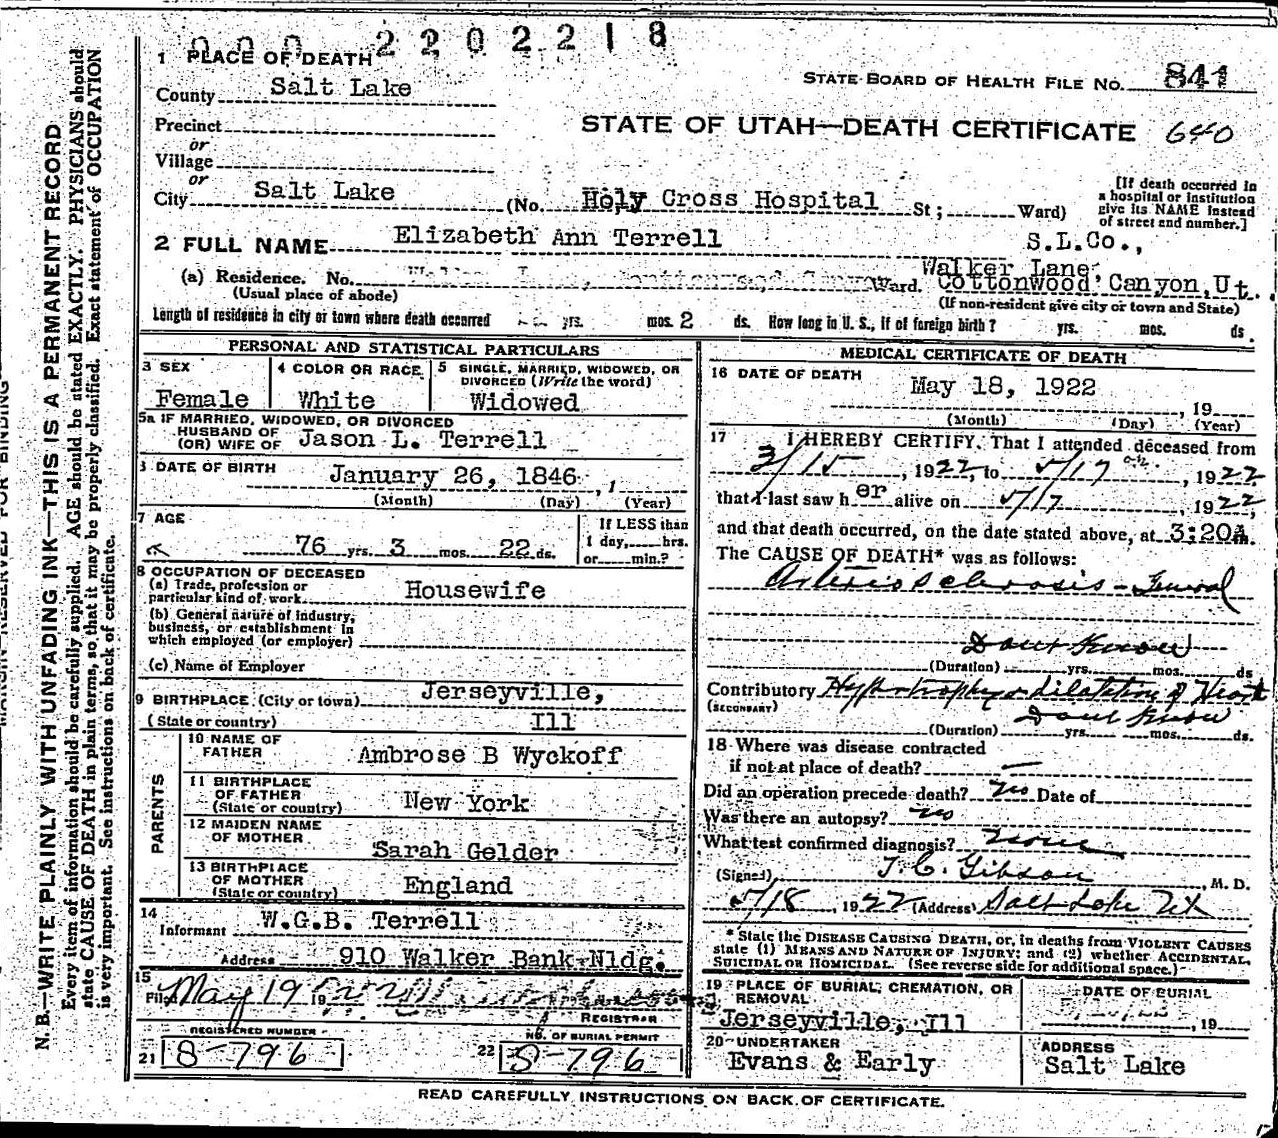 000 2202218
1 PLACE OF DEATH
STATE BOARD OF HEALTH FILE No. 841
County Salt Lake
STATE OF UTAH—DEATH CERTIFICATE 640
Precinct
or
Village
or
City Salt Lake (No. Holy Cross Hospital St; Ward)
[If death occurred in a hospital or institution give its NAME instead of street and number.]
2 FULL NAME Elizabeth Ann Terrell
S.L.Co.,
Walker Lane
(a) Residence. No. Ward. Cottonwood Canyon, Ut.
(Usual place of abode) (If non-resident give city or town and State)
Length of residence in city or town where death occurred yrs. mos. 2 ds. How long in U. S., if of foreign birth? yrs. mos. ds.
PERSONAL AND STATISTICAL PARTICULARS
3 SEX Female
4 COLOR OR RACE White
5 SINGLE, MARRIED, WIDOWED, OR DIVORCED (Write the word) Widowed
5a IF MARRIED, WIDOWED, OR DIVORCED
HUSBAND OF
(OR) WIFE OF Jason L. Terrell
DATE OF BIRTH January 26, 1846
(Month) (Day) (Year)
7 AGE 76 yrs. 3 mos. 22 ds.
If LESS than 1 day, hrs. or min.?
8 OCCUPATION OF DECEASED
(a) Trade, profession or particular kind of work Housewife
(b) General nature of industry, business, or establishment in which employed (or employer)
(c) Name of Employer
9 BIRTHPLACE (City or town) Jerseyville,
(State or country) Ill
PARENTS
10 NAME OF FATHER Ambrose B Wyckoff
11 BIRTHPLACE OF FATHER (State or country) New York
12 MAIDEN NAME OF MOTHER Sarah Gelder
13 BIRTHPLACE OF MOTHER (State or country) England
14 Informant W.G.B. Terrell
Address 910 Walker Bank Nldg.
15 Filed May 19 19 22
REGISTRAR
REGISTERED NUMBER
21 8-796
NO. OF BURIAL PERMIT
22 S-796
MEDICAL CERTIFICATE OF DEATH
16 DATE OF DEATH May 18, 1922
, 19
(Month) (Day) (Year)
17 I HEREBY CERTIFY, That I attended deceased from
3/15, 1922, to 5/17, 1922
that I last saw her alive on 5/17, 1922,
and that death occurred, on the date stated above, at 3:20A.
The CAUSE OF DEATH* was as follows:
Arterio sclerosis - General
Dont Know
(Duration) yrs. mos. ds
Contributory Hypertrophy & dilatation of Heart
(SECONDARY)
Dont Know
(Duration) yrs. mos. ds.
18 Where was disease contracted
if not at place of death? —
Did an operation precede death? no Date of
Was there an autopsy? no
What test confirmed diagnosis? none
(Signed) T. C. Gibson, M. D.
5/18, 1922 (Address) Salt Lake Ut
* State the DISEASE CAUSING DEATH, or, in deaths from VIOLENT CAUSES
state (1) MEANS AND NATURE OF INJURY; and (2) whether ACCIDENTAL,
SUICIDAL OR HOMICIDAL. (See reverse side for additional space.)
19 PLACE OF BURIAL, CREMATION, OR REMOVAL
Jerseyville, Ill
DATE OF BURIAL
, 19
20 UNDERTAKER
Evans & Early
ADDRESS
Salt Lake
READ CAREFULLY INSTRUCTIONS ON BACK OF CERTIFICATE.
MARGIN RESERVED FOR BINDING
N. B.—WRITE PLAINLY WITH UNFADING INK—THIS IS A PERMANENT RECORD
Every item of information should be carefully supplied. AGE should be stated EXACTLY. PHYSICIANS should
state CAUSE OF DEATH in plain terms, so that it may be properly classified. Exact statement of OCCUPATION
is very important. See instructions on back of certificate.